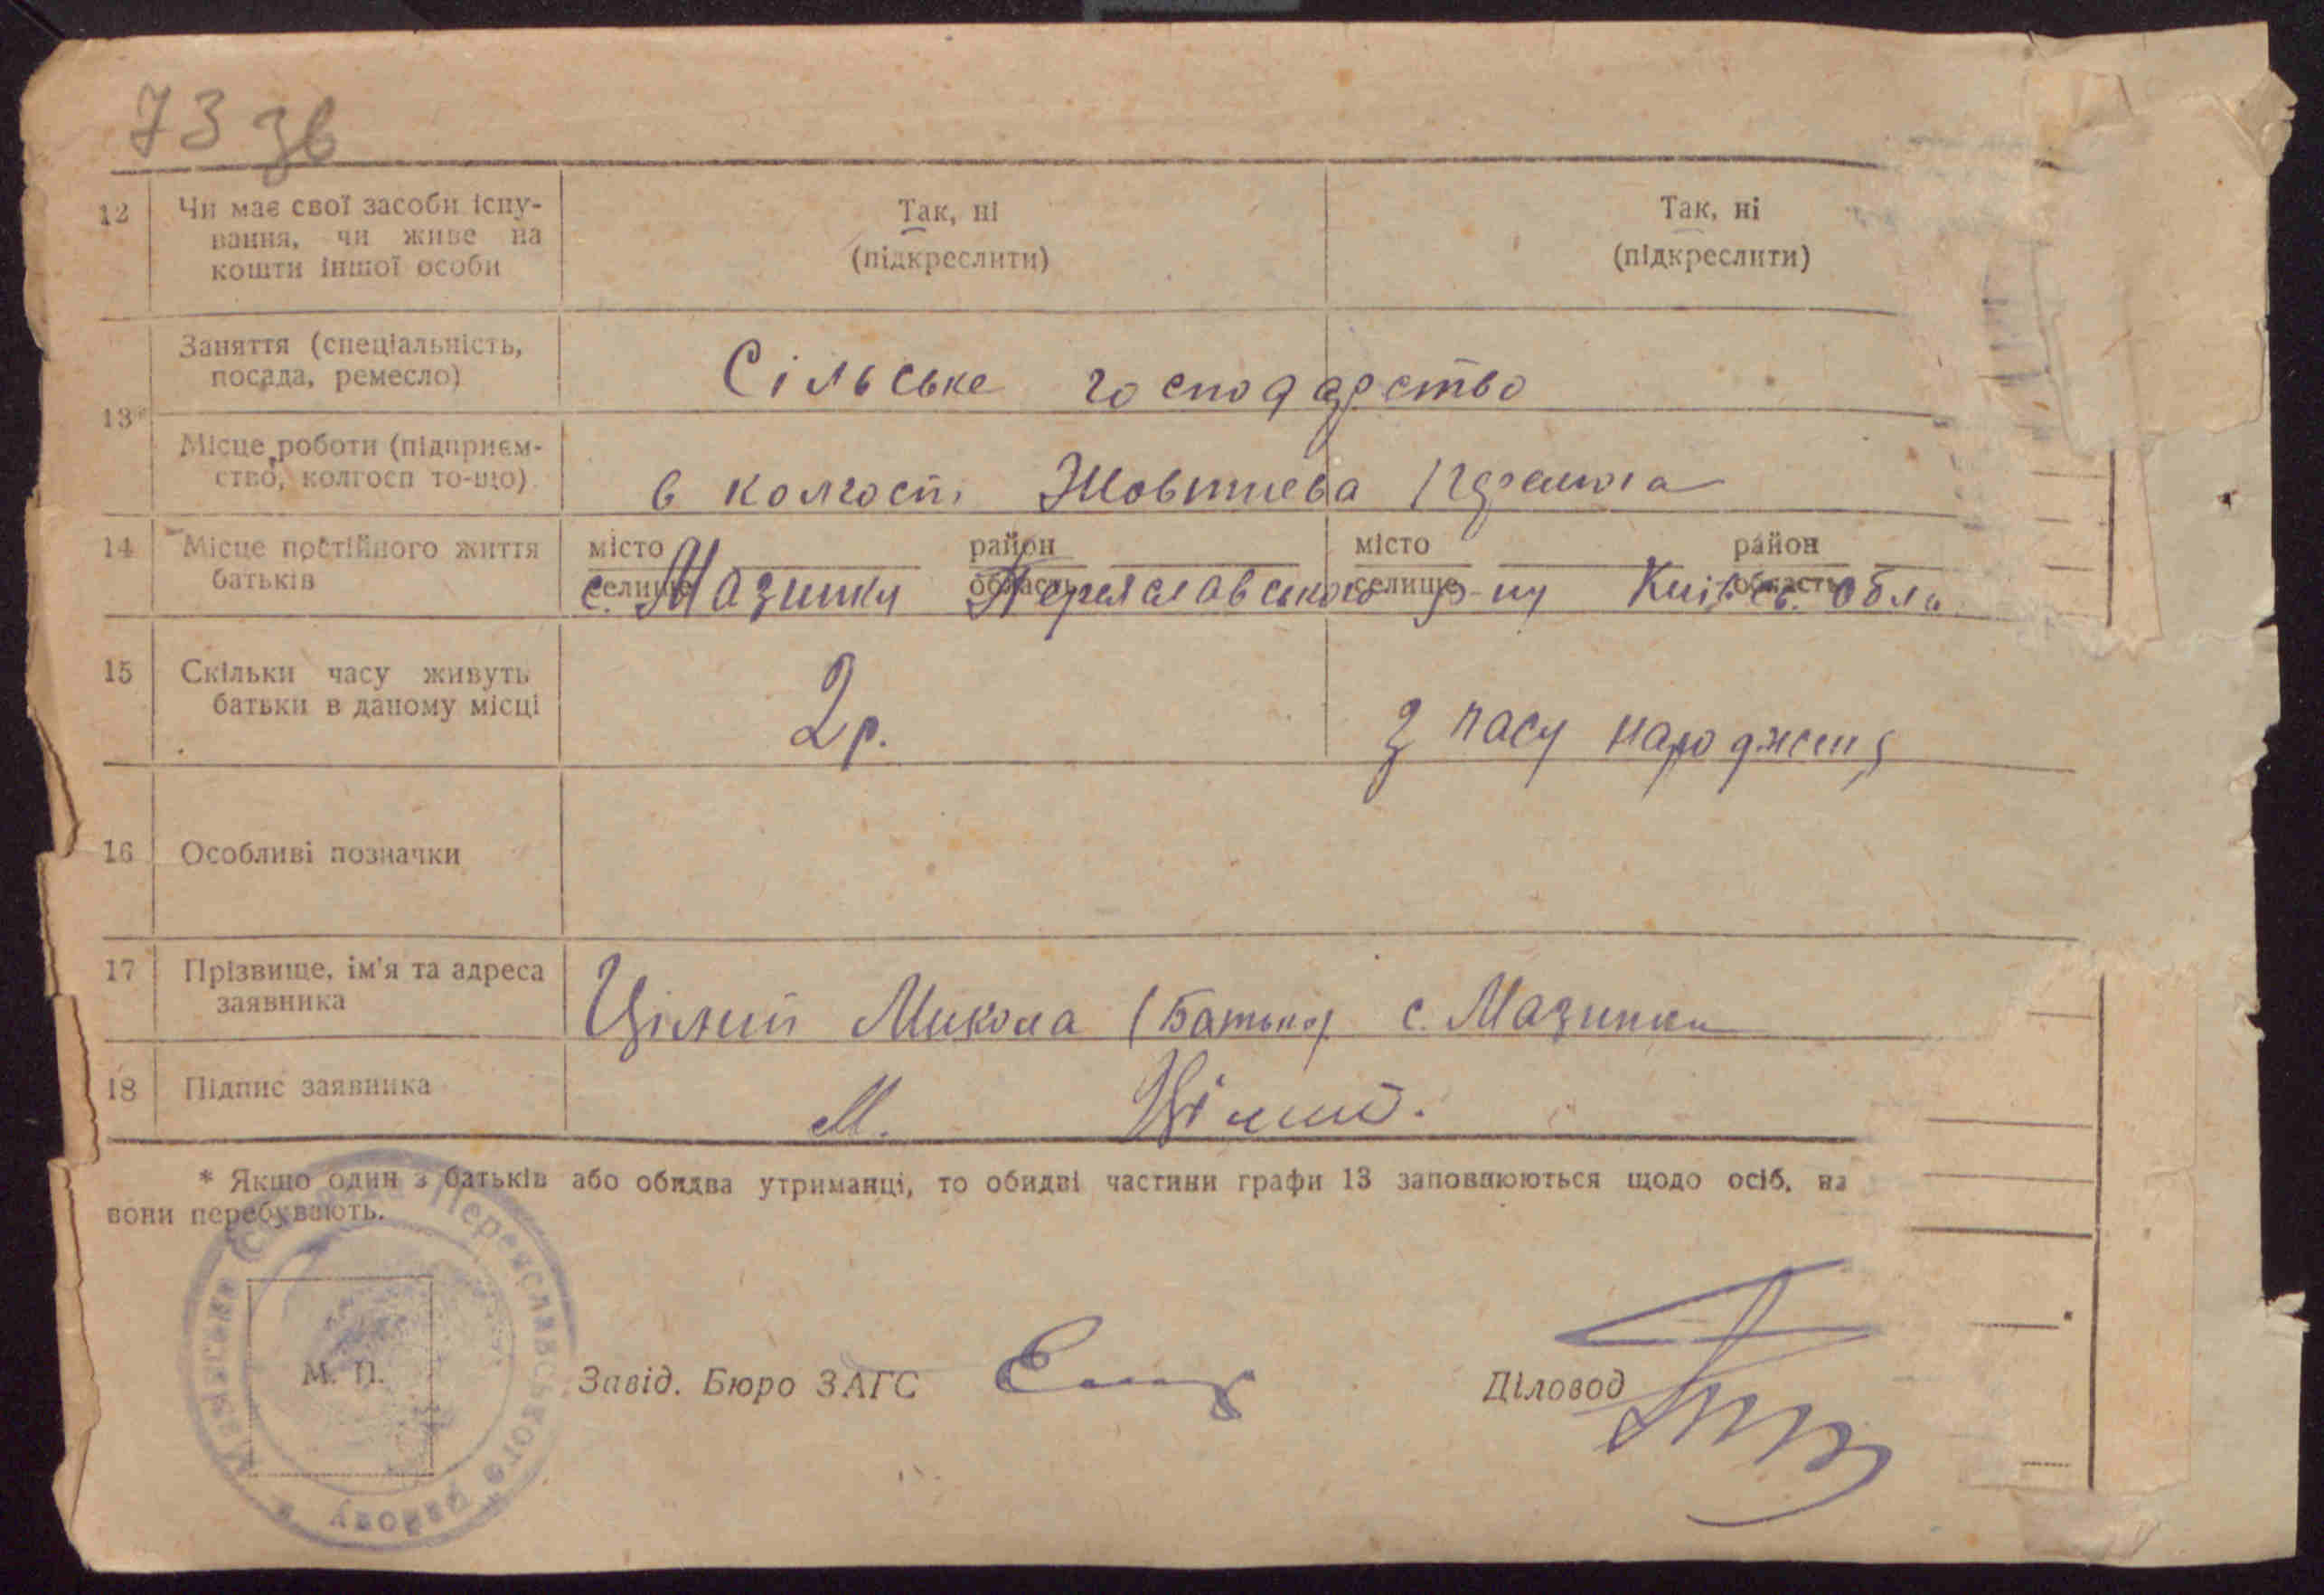 73 зв
12 Чи має свої засоби існу-
вання, чи живе на
кошти іншої особи
Так, ні
(підкреслити)
Так, ні
(підкреслити)
13* Заняття (спеціальність,
посада, ремесло)
Сільське господарство
Місце роботи (підприєм-
ство, колгосп то-що)
в колгоспі Жовтнева
14 Місце постійного життя
батьків
місто район місто район
селище область селище область
с. Мазинки Переяславського р-ну Київсь. обл.
15 Скільки часу живуть
батьки в даному місці
2р.
з часу народженя
16 Особливі позначки
17 Прізвище, ім'я та адреса
заявника
Цілий Микола (Батько) с. Мазинки
18 Підпис заявника
М. Цілий.
* Якщо один з батьків або обидва утриманці, то обидві частини графи 13 заповнюються щодо осіб, на
вони перебувають.
Переяславського району
М. П.
Завід. Бюро ЗАГС
Діловод